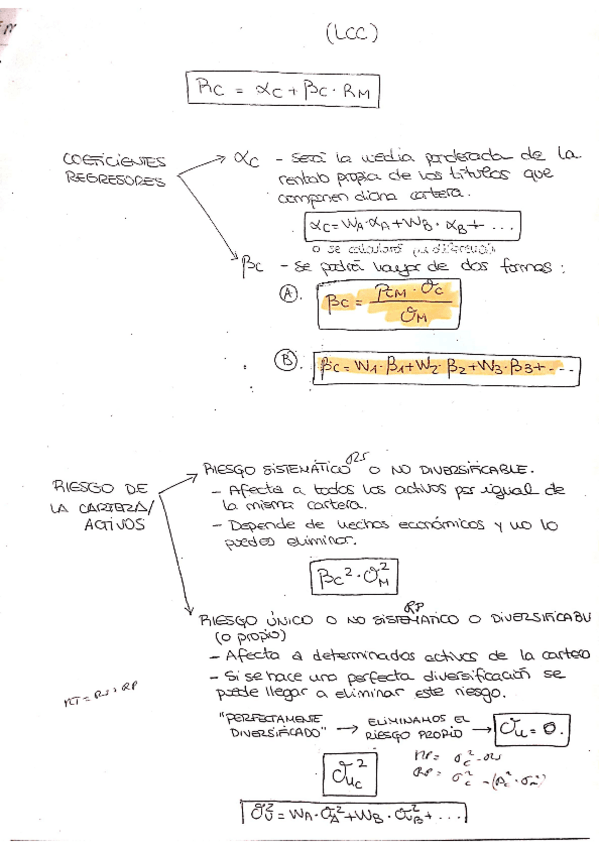 (LCC)
RC = αC + βC · RM
COEFICIENTES
REGRESORES
αC - Será la media ponderada de la
rentab propia de los títulos que
componen dicha cartera.
αC = WA·αA + WB·αB + ...
o se calculará
βC - Se podrá hayar de dos formas:
A. βC = ρCM · σC / σM
B. βC = W1·β1 + W2·β2 + W3·β3 + ...
RIESGO DE
LA CARTERA/
ACTIVOS
RS
RIESGO SISTEMÁTICO O NO DIVERSIFICABLE.
- Afecta a todos los activos por igual de
la misma cartera.
- Depende de hechos económicos y no lo
puedes eliminar.
βC² · σM²
RP
RIESGO ÚNICO O NO SISTEMÁTICO O DIVERSIFICABL
(o propio)
- Afecta a determinados activos de la cartera
- Si se hace una perfecta diversificación se
puede llegar a eliminar este riesgo.
RT = RS + RP
"PERFECTAMENTE
DIVERSIFICADO" → ELIMINAMOS EL
RIESGO PROPIO → σu = 0.
σuC²
RP = σC² - RS
RP = σC² - (βC² · σM²)
σU² = WA · σA² + WB · σuB² + ...